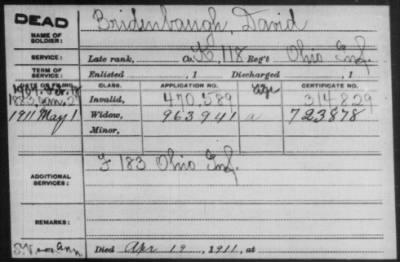 DEAD
NAME OF SOLDIER: Bridenbaugh, David
SERVICE: Late rank, Co. K, 118 Reg't Ohio Inf.
TERM OF SERVICE: Enlisted , 1 Discharged , 1
DATE OF FILING. CLASS. APPLICATION NO. CERTIFICATE NO.
Invalid, 470,589 314829
1911 May 1 Widow, 963941 a 723878
Minor,
ADDITIONAL SERVICES: F 183 Ohio Inf.
REMARKS:
Died Apr 19, 1911, at